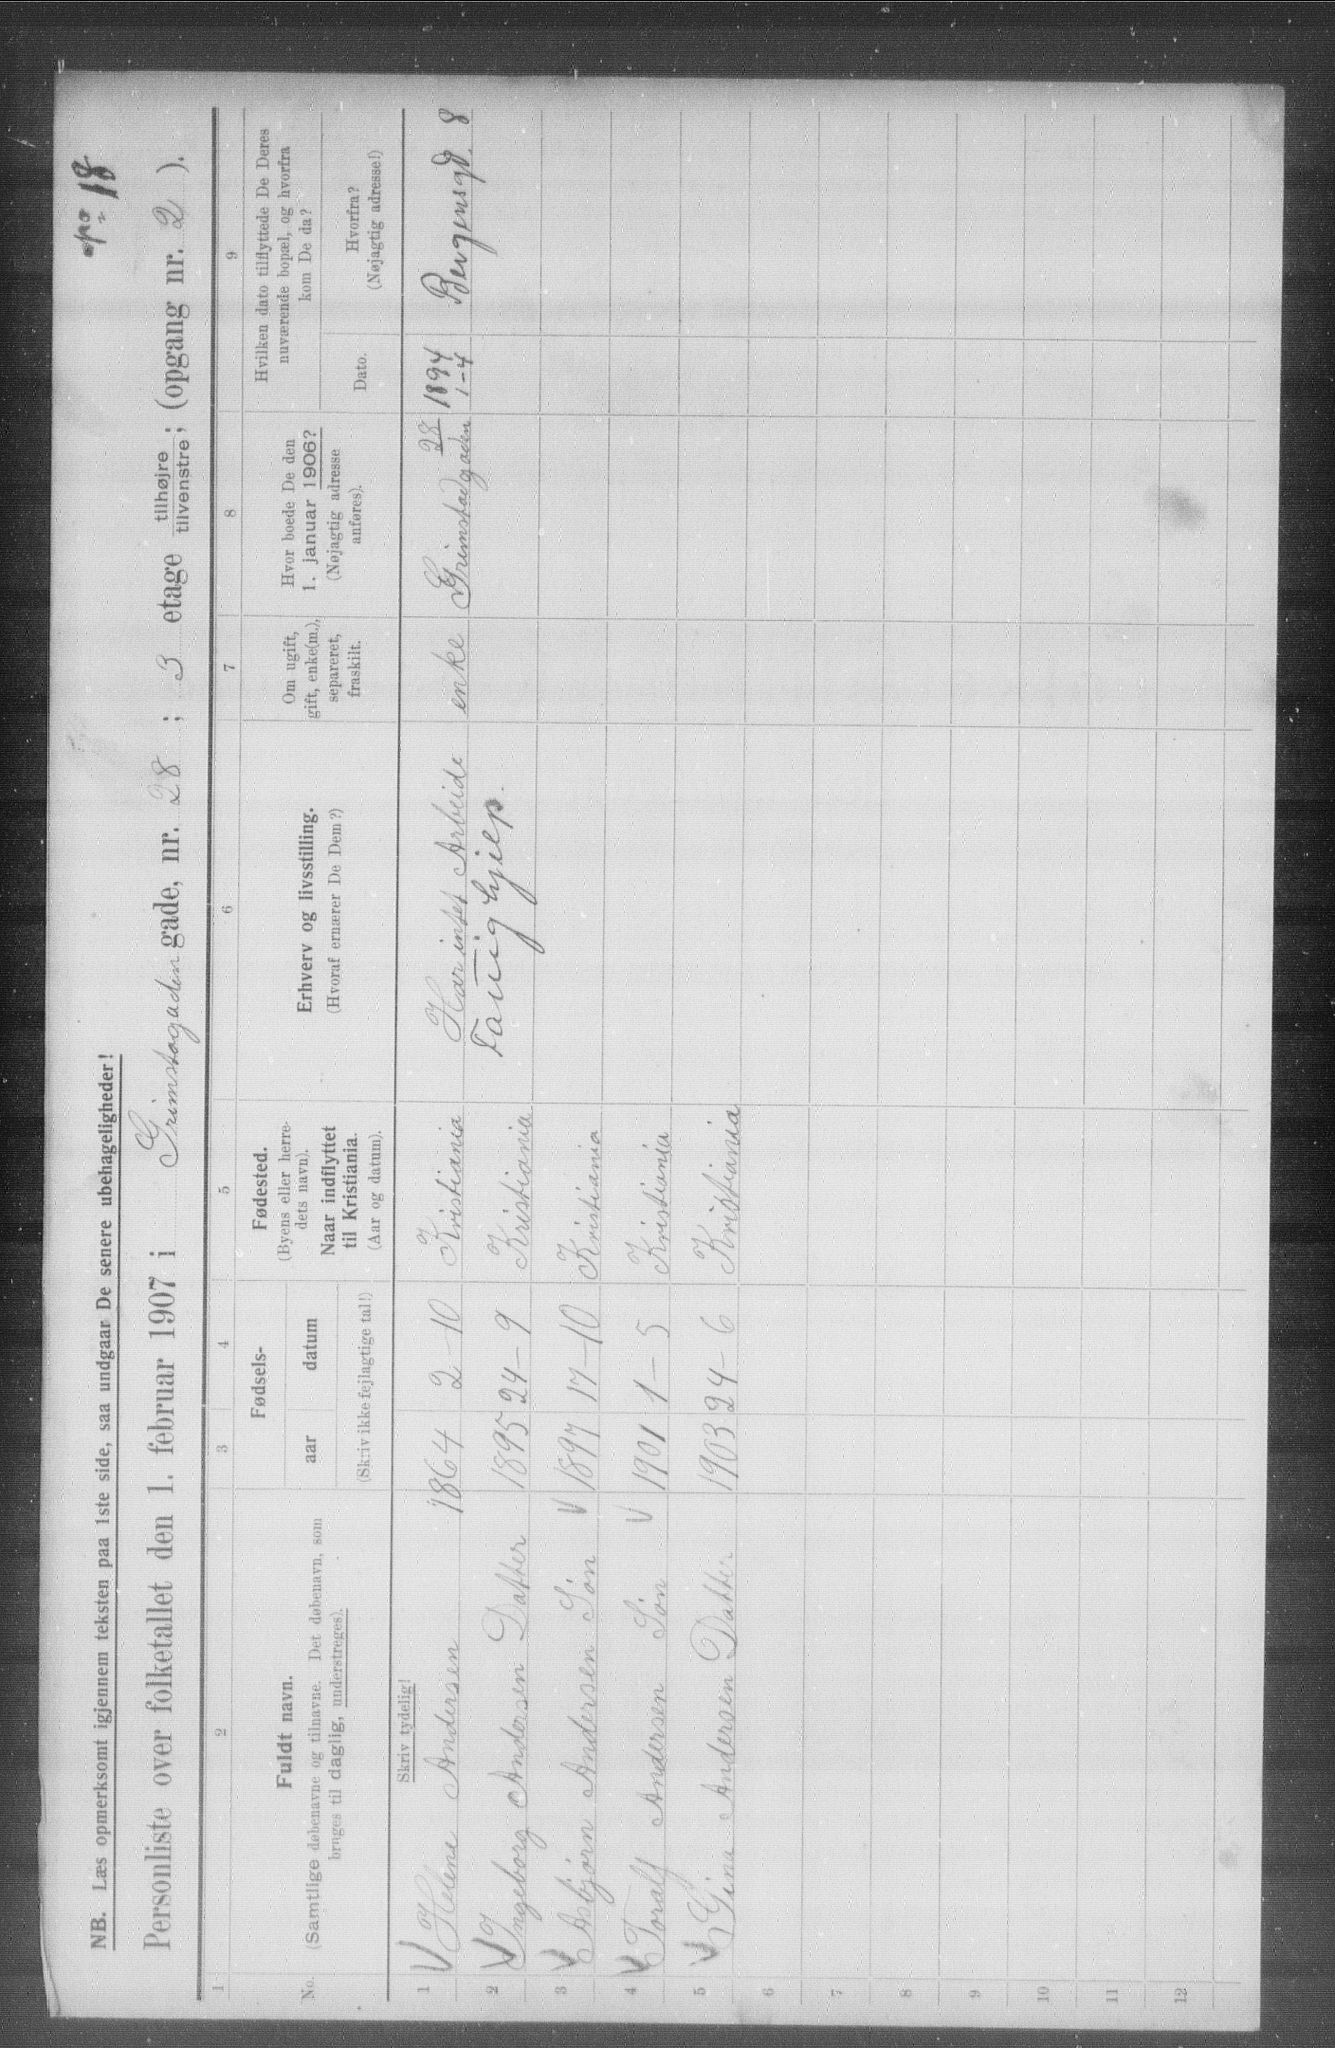 18
NB. Læs opmerksomt igjennem teksten paa 1ste side, saa undgaar De senere ubehageligheder!
Personliste over folketallet den 1. februar 1907 i Grimstagaden gade, nr. 28 ; 3 etage tilhøjre tilvenstre; (opgang nr. 2 ).
1 2 3 4 5 6 7 8 9
No.
Fuldt navn.
(Samtlige døbenavne og tilnavne. Det døbenavn, som
bruges til daglig, understreges).
Fødsels-
aar datum
(Skriv ikke fejlagtige tal!)
Fødested.
(Byens eller herre-
dets navn).
Naar indflyttet
til Kristiania.
(Aar og datum).
Erhverv og livsstilling.
(Hvoraf ernærer De Dem?)
Om ugift,
gift, enke(m.),
separeret,
fraskilt.
Hvor boede De den
1. januar 1906?
(Nøjagtig adresse
anføres).
Hvilken dato tilflyttede De Deres
nuværende bopæl, og hvorfra
kom De da?
Dato.
Hvorfra?
(Nøjagtig adresse!)
Skriv tydelig!
1 V Helene Andersen 1864 2-10 Kristiania Har intet Arbeide enke Grimstadgaden 28 1894 1-4 Bergensgd. 8
Fattighjelp.
2 V Ingeborg Andersen Datter 1895 24-9 Kristiania
3 V Asbjørn Andersen Søn V 1897 17-10 Kristiania
4 V Toralf Andersen Søn V 1901 1-5 Kristiania
5 V Gina Andersen Datter 1903 24-6 Kristiania
6
7
8
9
10
11
12